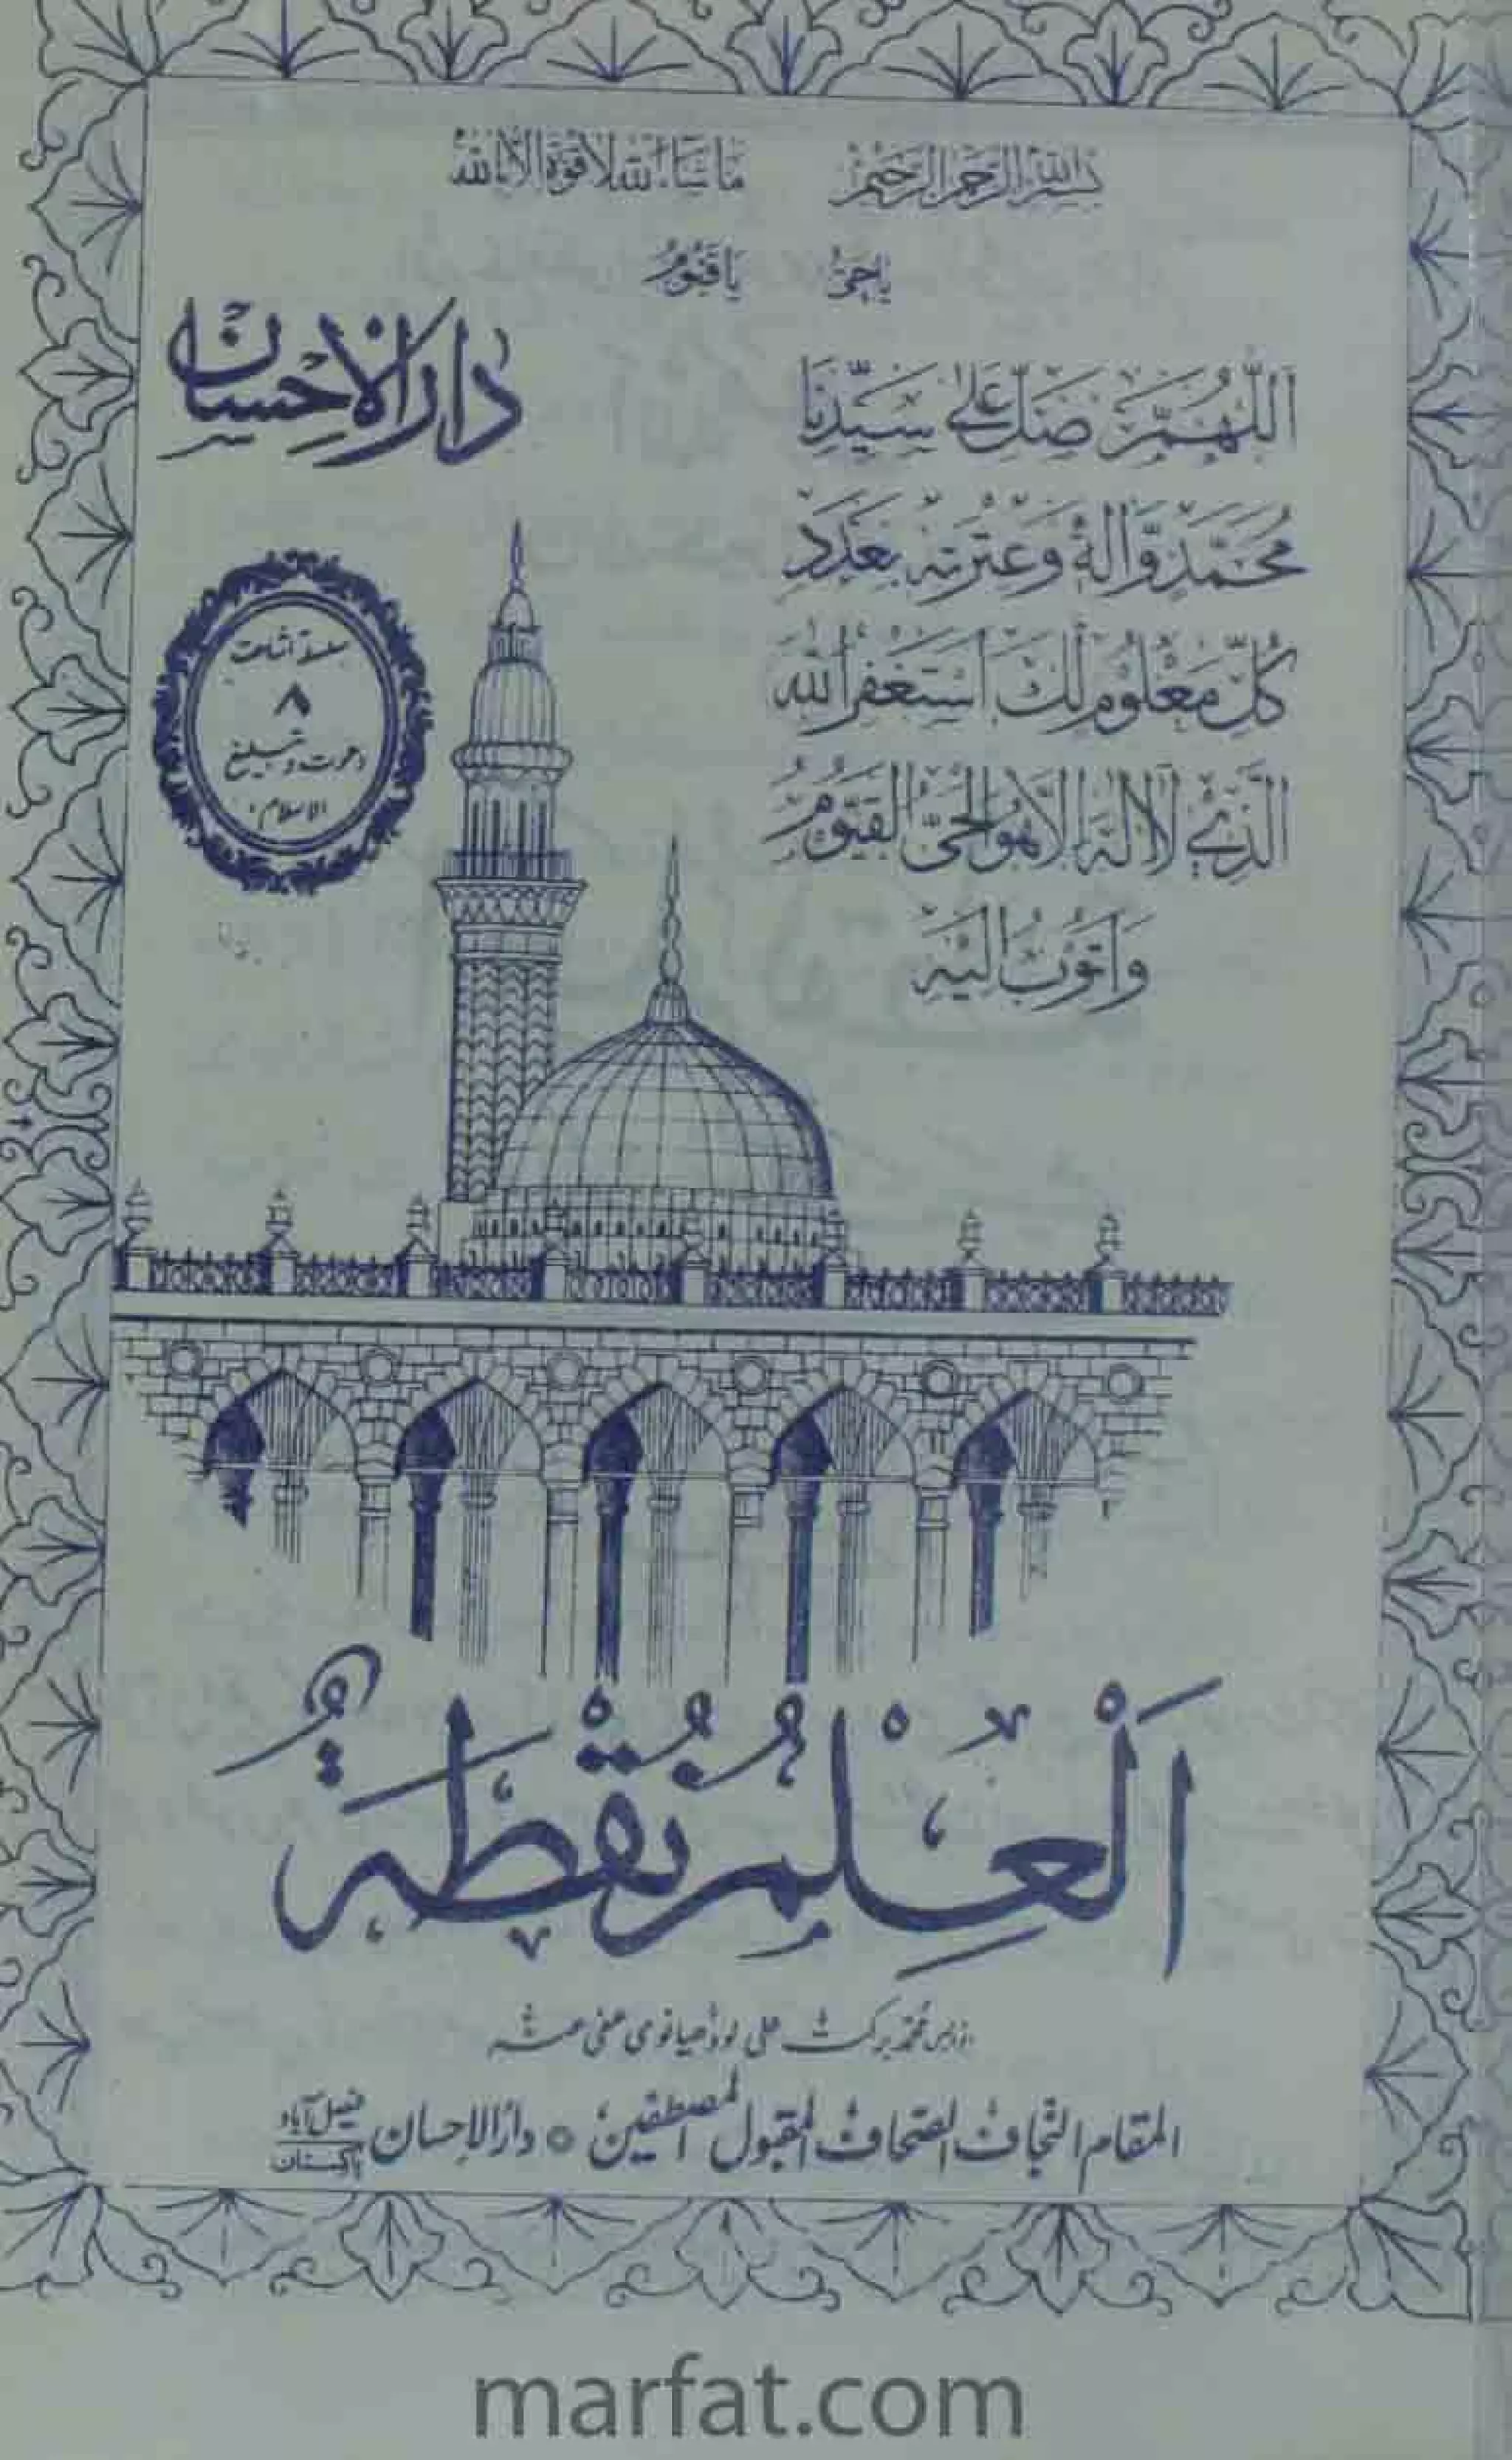 بِسْمِ اللّٰهِ الرَّحْمٰنِ الرَّحِيْمِ مَا شَآءَ اللّٰهُ لَا قُوَّةَ اِلَّا بِاللّٰهِ
يَا حَيُّ يَا قَيُّوْمُ
دارالاحسان
اَللّٰهُمَّ صَلِّ عَلٰى سَيِّدِنَا
مُحَمَّدٍ وَّاٰلِهٖ وَعِتْرَتِهٖ بِعَدَدِ
كُلِّ مَعْلُوْمٍ لَّكَ اَسْتَغْفِرُ اللّٰهَ
الَّذِيْ لَا اِلٰهَ اِلَّا هُوَ الْحَيُّ الْقَيُّوْمُ
وَاَتُوْبُ اِلَيْهِ
سلسلۂ اشاعت
۸
دعوت و تبلیغ
الاسلام
اَلْعِلْمُ نُقْطَةٌ
محمد برکت علی لودھیانوی عفی عنہ
المقام النجاف الصحاف المقبول المصطفین دارالاحسان فیصل آباد
پاکستان
marfat.com